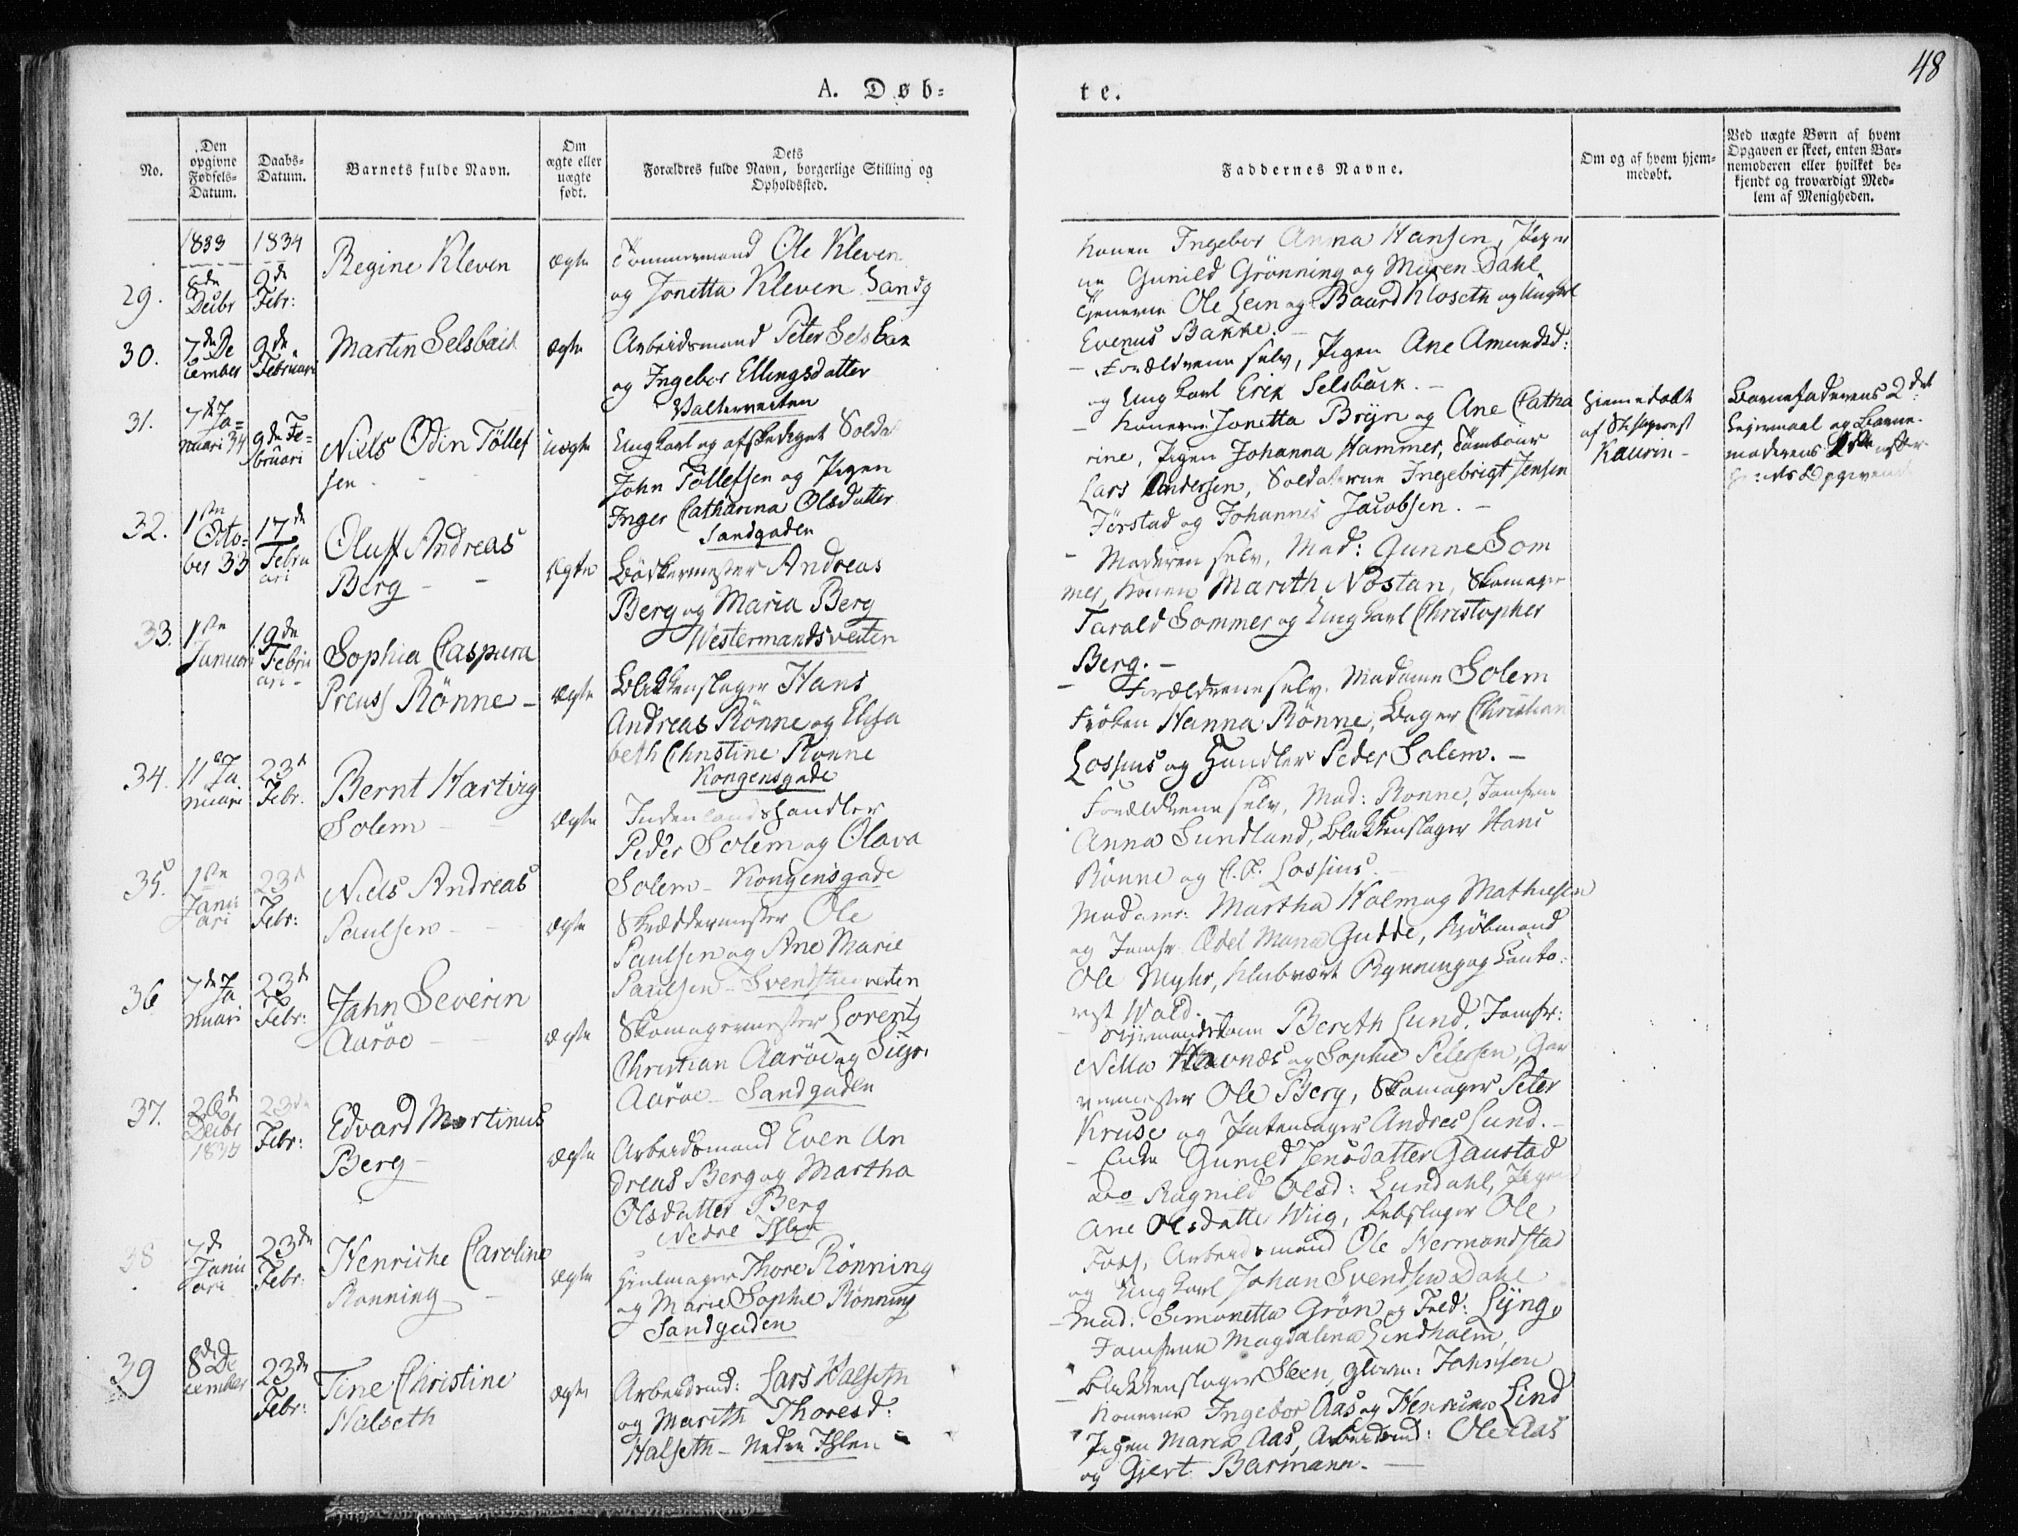 48
A. Døb-
te.
No.
Den opgivne Fødsels-Datum.
Daabs-Datum.
Barnets fulde Navn.
Om ægte eller uægte født.
Dets Forældres fulde Navn, borgerlige Stilling og Opholdsted.
Faddernes Navne.
Om og af hvem hjemmedøbt.
Ved uægte Børn af hvem Opgaven er skeet, enten Barnemoderen eller hvilket bekjendt og troværdigt Medlem af Menigheden.
1833
1834
29.
Decbr
9de
Febr:
Regine Kleven
ægte
Tømmermand Ole Kleven
og Jonetta Kleven Sandg
Konen Ingebor Anna Hansen, Piger
ne Gunild Grönning og Maren Dahl
Tjenerne Ole Lein og Baard Kloseth og Ungkarl
Evenus Bakke. –
30.
7de De
cember
9de
Februari
Martin Selsbak
ægte
Arbeidsmand Peter Selsbak
og Ingebor Ellingsdatter
– Forældrene selv, Pigen Ane Amundsd:
og Ungkarl Erik Selsbak. –
31.
7de Ja-
nuari 34
9de Fe-
bruari
Niels Odin Töllef
sen
uægte
Ungkarl og afskediget Soldat
John Töllefsen og Pigen
Inger Catharina Olsdatter
Sandgaden
– Konerne Jonetta Bryn og Ane Catha
rine, Pigen Johanna Hammer, Tambour
Lars Andersen, Soldaterne Ingebrigt Jensen
Förstad og Johannes Jacobsen. –
Hjemmedøbt
af
Kaurin –
Barnefaderens 2det
Leiermaal og Barne-
moderens
Opgivende
32.
1ste
Octo-
ber 33
17de
Febru
ari
Oluff Andreas
Berg –
ægte
Bödkermester Andreas
Berg og Maria Berg
Westermandsveiten
– Moderen selv, Mad: Gunne Som
mer, Konen Marith Nöstan, Skomager
Tarald Sommer og Ungkarl Christopher
Berg. –
33.
1ste
Januari
19de
Febru
ari –
Sophia Caspara
Preuss Rönne –
ægte
Blikkenslager Hans
Andreas Rönne og Elisa
beth Christine Rönne
Kongensgade
– Forældrene selv. Madame Solem
Fröken Hanna Rönne, Bager Christian
Lossius og Handler Peder Solem. –
34.
11te Ja
nuari
23de
Febr.
Bernt Hartvig
Solem –
ægte
Indenlandshandler
Peder Solem og Olava
Solem – Kongensgade
Forældrene selv, Mad: Rönne, Jomfrue
Anna Sundland, Blikkenslager Hans
Rönne og C. P. Lossius.
35.
1ste
Janu
ari
23de
Febr:
Niels Andreas
Paulsen –
ægte
Skræddermester Ole
Paulsen og Ane Marie
Paulsen –
Madame: Martha Holm og Mathiesen
og Jomfr. Edel Maria Gudde, Kjöbmand
Ole Myhr, Klubvært Rynning og
Wold.
36
7de Ja
nuari
23de
Febr:
Jahn Severin
Aaröe –
ægte
Skomagermester Lorentz
Christian Aaröe og
Aaröe – Sandgaden
Bereth Lund, Jomfr:
Nella Havnæs og Sophie Petersen, Gar
vermester Ole Berg, Skomager Peter
Kruse og Andres Lund. –
37.
26de
Decbr
23de
Febr:
Edvard Martinus
Berg –
ægte
Arbeidsmand Even An
dreas Berg og Martha
Olsdatter Berg
Nedre Ihlen
– Enke Gunild Jensdatter Gaustad
Do Ragnild Olsd: Lundahl, Pigen
Ane Olsdatter Wiig, Rebslager Ole
Foss, Arbeidsmand Ole Hermandstad
og Ungkarl Johan Svendsen Dahl
38
7de
Janu
ari
23de
Febr:
Henriche Caroline
Rönning –
ægte
Hiulmager Thore Rönning
og Marie Sophie Rönning
Sandgaden
– Mad: Simonetta Grön og Fred: Lyng,
Jomfrue Magdalina Lindholm,
Blikkenslager Steen, Johnsen
39
8de De
cember
23de
Febr:
Tine Christine
Halseth
ægte
Arbeidsmd: Lars Halseth
og Marith Thoresd:
Halseth – Nedre Ihlen –
Konerne Ingebor Aas og Henrikke Lind
Pigen Maria Aas, Arbeidsmd: Ole Aas
og Gjert Barmann. –